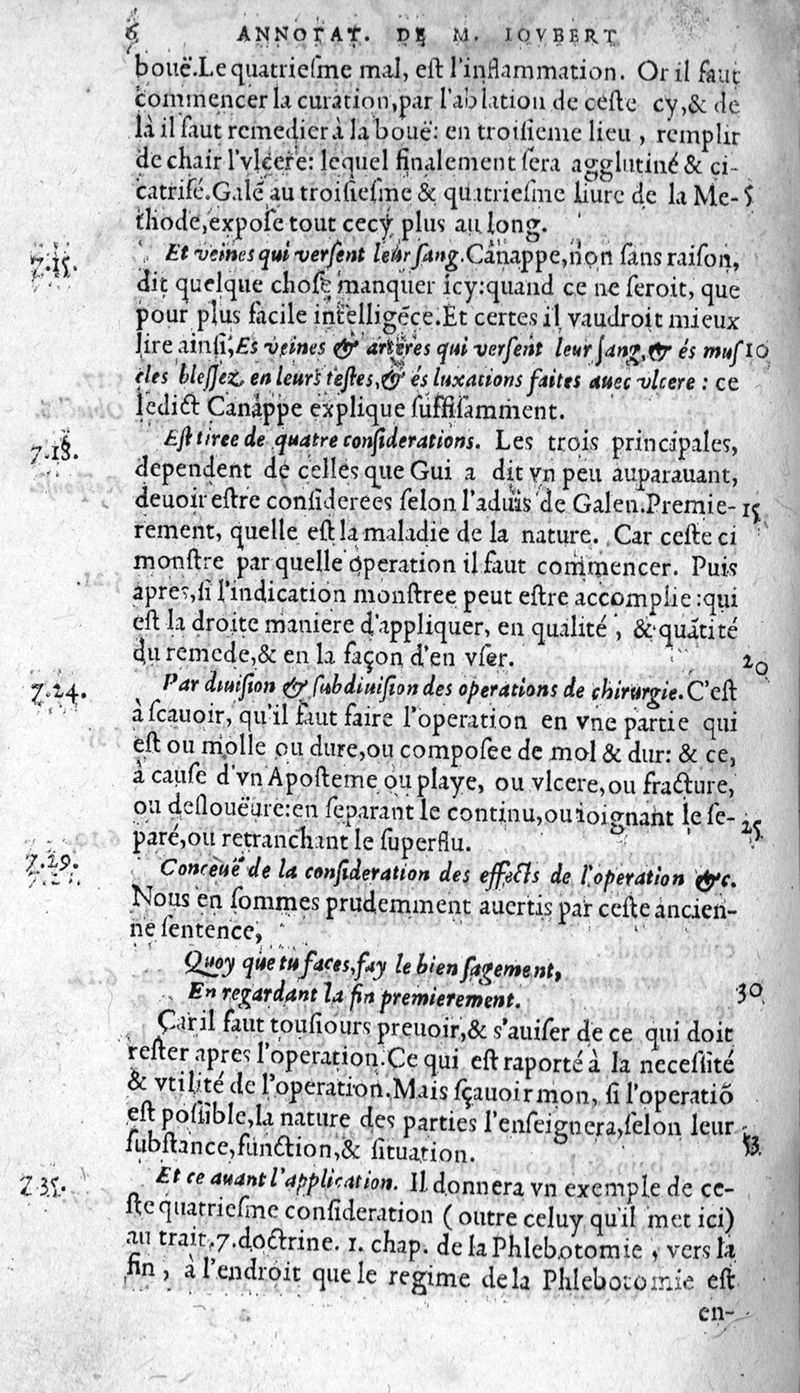 6 ANNOTAT. DE M. IOVBERT
bouë.Le quatriesme mal, est l'inflammation. Or il faut
commencer la curation,par l'ablation de ceste cy,& de
là il faut remedier à la bouë: en troisieme lieu , remplir
de chair l'vlcere: lequel finalement sera agglutiné & ci-
catrisé.Galē au troisiesme & quatriesme liure de la Me- 5
thode,expose tout cecy plus au long.
7.15. Et veines qui versent leur sang.Canappe,non sans raison,
dit quelque chose manquer icy:quand ce ne seroit, que
pour plus facile intelligēce.Et certes il vaudroit mieux
lire ainsi,Es veines & arteres qui versent leur sang,& és mus 10
cles blessez, en leurs testes,& és luxations faites auec vlcere : ce
ledict Canappe explique suffisamment.
7.18. Est tiree de quatre considerations. Les trois principales,
dependent de celles que Gui a dit vn peu auparauant,
deuoir estre considerees selon l'aduis de Galen.Premie- 15
rement, quelle est la maladie de la nature. Car ceste ci
monstre par quelle operation il faut commencer. Puis
apres,si l'indication monstree peut estre accomplie :qui
est la droite maniere d'appliquer, en qualité , & quātité
du remede,& en la façon d'en vser. 20
7.24. Par diuision & subdiuision des operations de chirurgie.C'est
à scauoir, qu'il faut faire l'operation en vne partie qui
est ou molle ou dure,ou composee de mol & dur: & ce,
à cause d'vn Aposteme ou playe, ou vlcere,ou fracture,
ou deslouëure:en separant le continu,ou ioignant le se- 25
paré,ou retranchant le superflu.
7.29. Conceuë de la consideration des effects de l'operation &c.
Nous en sommes prudemment auertis par ceste ancien-
ne sentence,
Quoy que tu faces,fay le bien sagement,
En regardant la fin premierement. 30
Car il faut tousiours preuoir,& s'auiser de ce qui doit
rester apres l'operation.Ce qui est raporté à la necessité
& vtilité de l'operation.Mais sçauoir mon, si l'operatiō
est possible,la nature des parties l'enseignera,selon leur
substance,function,& situation.
7.35. Et ce auant l'application. Il donnera vn exemple de ce-
ste quatriesme consideration ( outre celuy qu'il met ici)
au trait.7.doctrine. 1. chap. de la Phlebotomie , vers la
fin , à l'endroit que le regime de la Phlebotomie est
en-